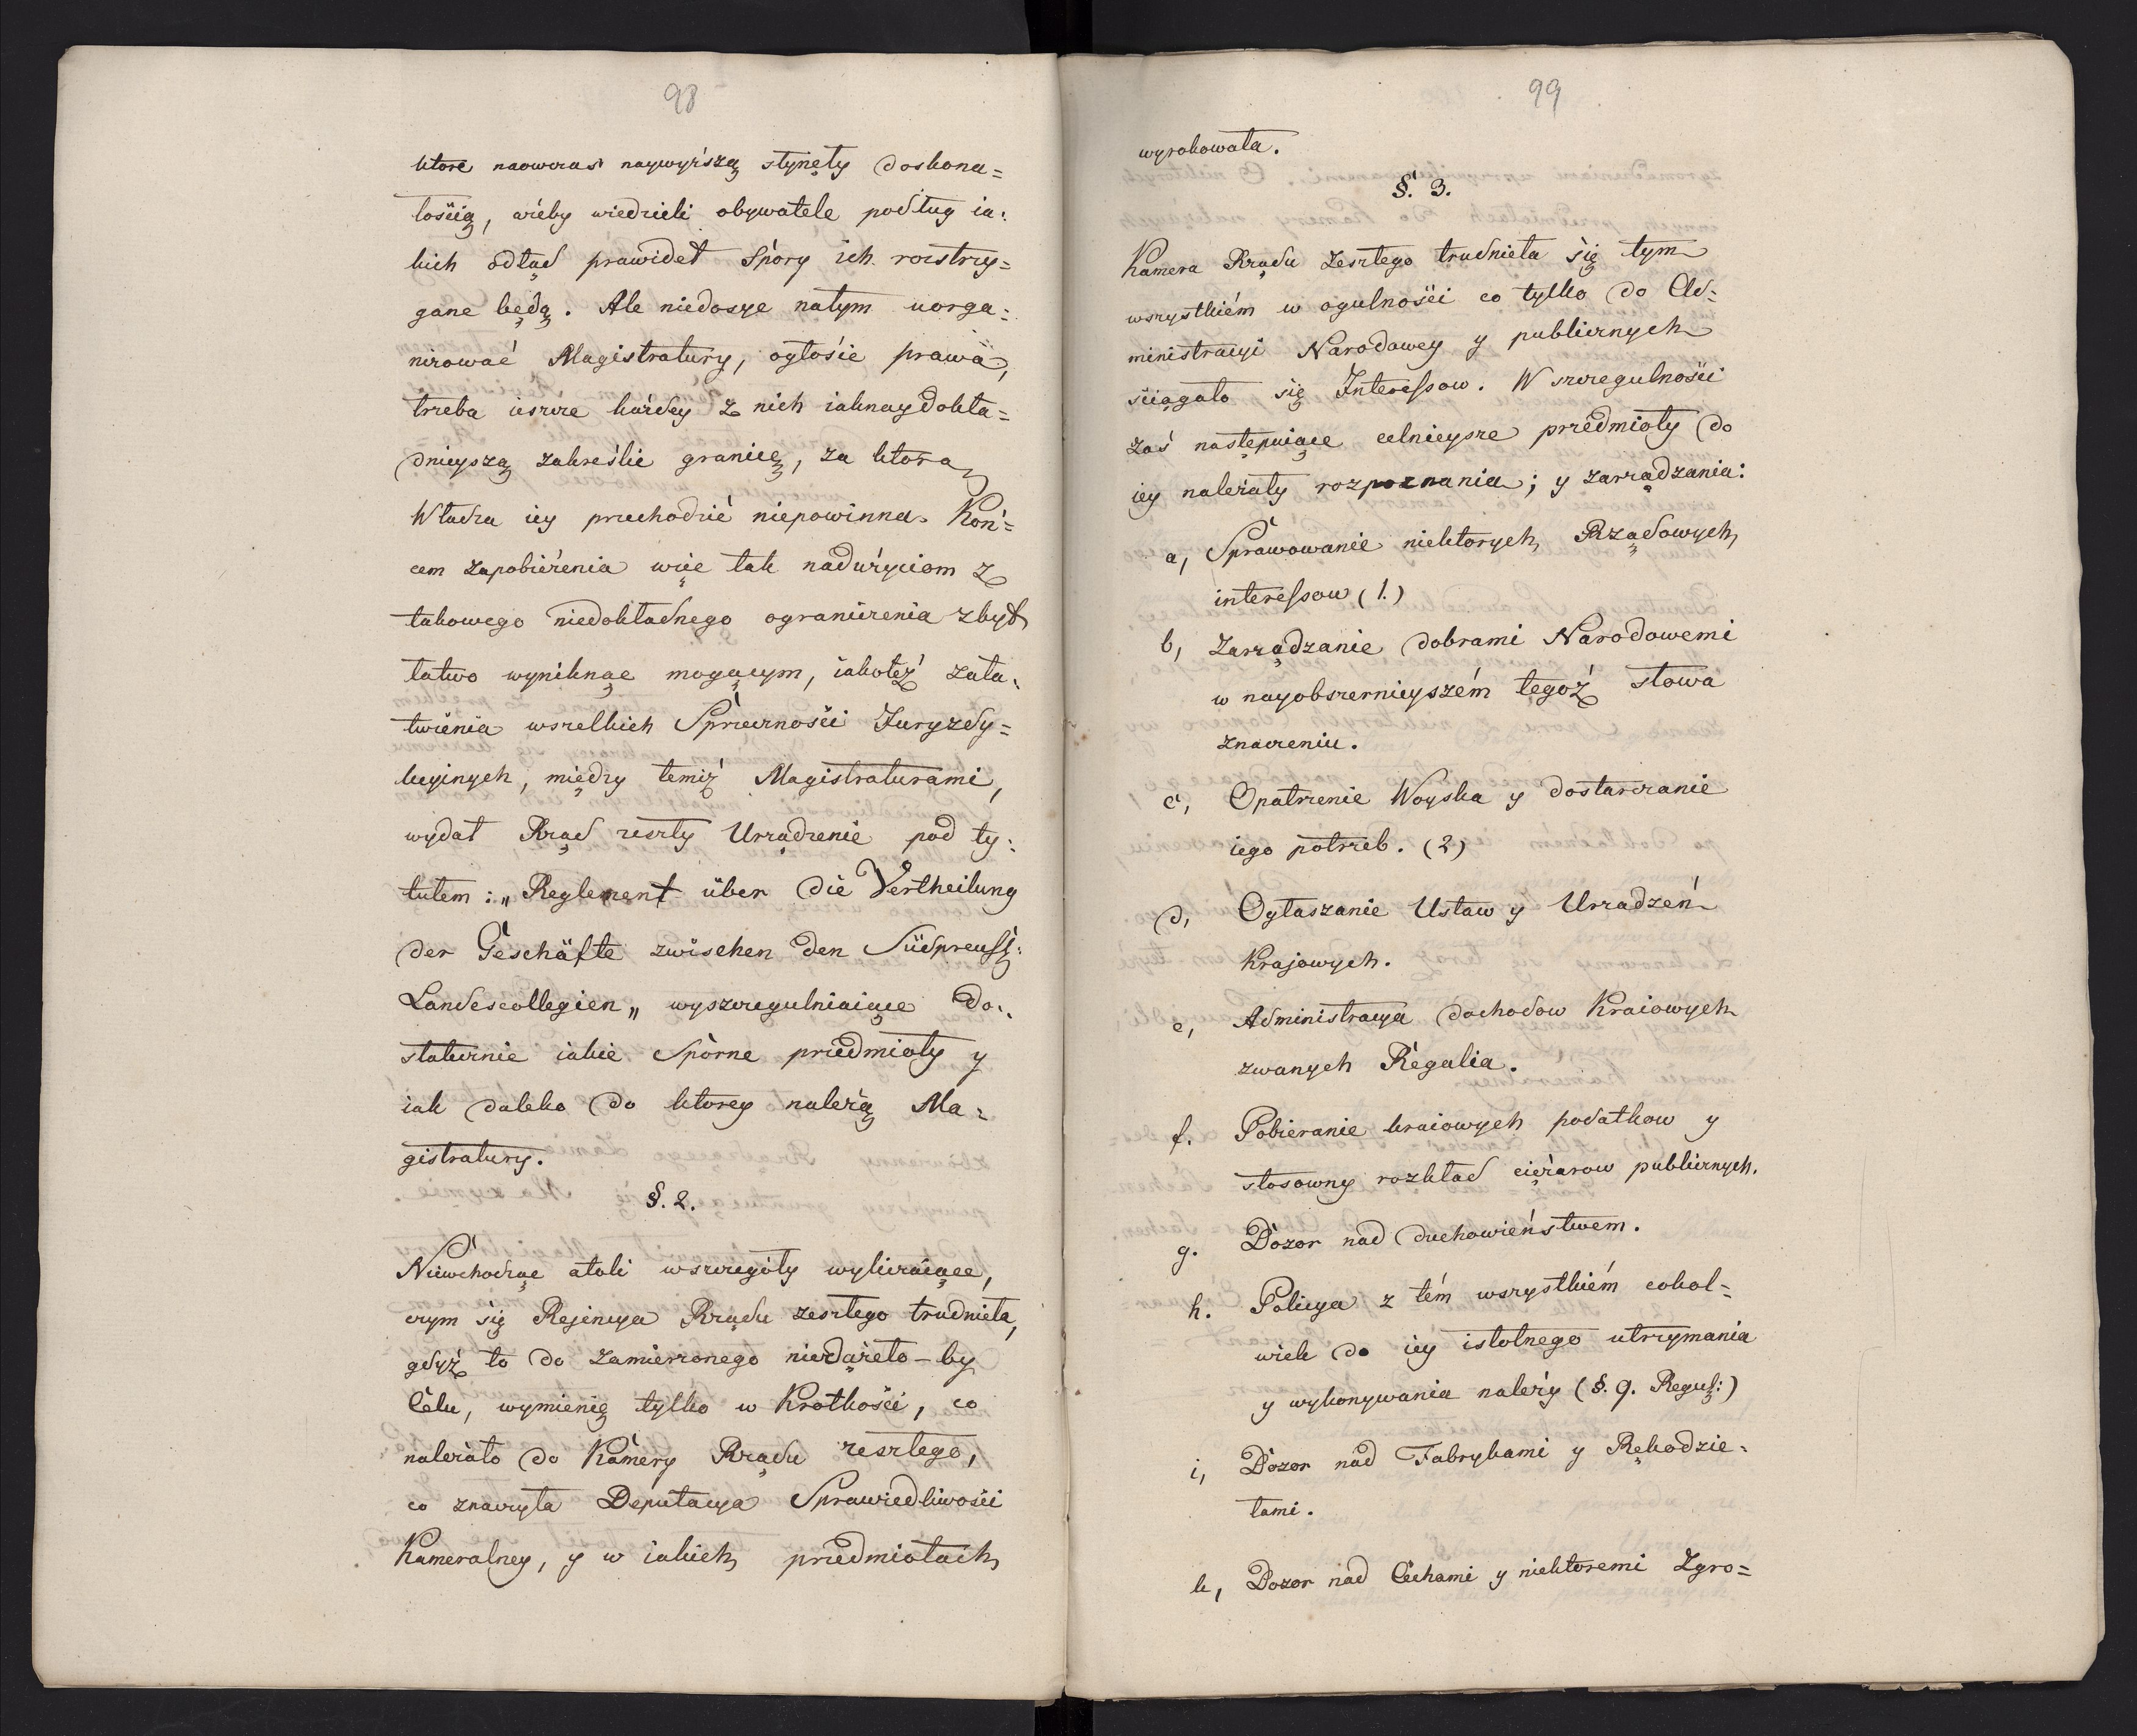 98
ktore naowczas naywyższą słynęły doskona=
łością, ażeby wiedzieli obywatele podług ia=
kich odtąd prawideł Spory ich rozstrzy=
gane będą. Ale niedosyc natym uorga=
nizować Magistratury, ogłosić prawa,
trzeba ieszcze każdey z nich iaknaydokła=
dnieyszą zakreślić granicę, za ktorą
Władza iey przechodzić niepowinna. Koń=
cem zapobieżenia więc tak nadużyciom z
takowego niedokładnego ograniczenia zbyt
łatwo wyniknąc mogącym, iakoteż zała=
twienia wszelkich Sprzeczności Juryzdy=
kcyinych, między temiż Magistraturami,
wydał Rząd zeszły Urządzenie pod ty=
tułem: „Reglement über die Vertheilung
der Geschäfte zwischen den Südpreuſs:
Landescollegien„ wyszczegulniaiące do=
statecznie iakie Sporne przedmioty y
iak daleko do ktorey należą Ma=
gistratury.
§. 2.
Niewchodząc atoli wszczegóły wyliczaiące,
czym się Rejencya Rządu zeszłego trudnieła,
gdyż to do zamierzonego niedążeło-by
Celu, wymienię tylko w Krótkości, co
należało do Kamery Rządu zeszłego,
co znaczyła Deputacya Sprawiedliwości
Kameralney, y w iakich przedmiotach
99
wyrokowała.
§. 3.
Kamera Rządu Zeszłego trudnieła się tym
wszystkiém w ogulności co tylko do Ad=
ministracyi Narodowey y publicznych
ściągało się Intereſsow. W szczegulności
zaś następuiące celnieysze przedmioty do
iey należały rozpoznania; y zarządzania:
a, Sprawowanie niektorych Rządowych
intereſsow (1.)
b, Zarządzanie dobrami Narodowemi
w nayobszernieyszém tegoż słowa
znaczeniu.
c, Opatrzenie Woyska y dostarczanie
iego potrzeb. (2)
d, Ogłaszanie Ustaw y Urządzeń
Krajowych.
e, Administracya dochodow Kraiowych
zwanych Regalia.
f. Pobieranie kraiowych podatkow y
stosowny rozkład ciężarow publicznych.
g. Dozor nad duchowieństwem.
h. Policya z tém wszystkiém cokol=
wiek do iey istotnego utrzymania
y wykonywania należy (§. 9. Regul:)
i, Dozor nad Fabrykami y Rękodzie=
łami.
k, Dozor nad Cechami y niektoremi Zgro=